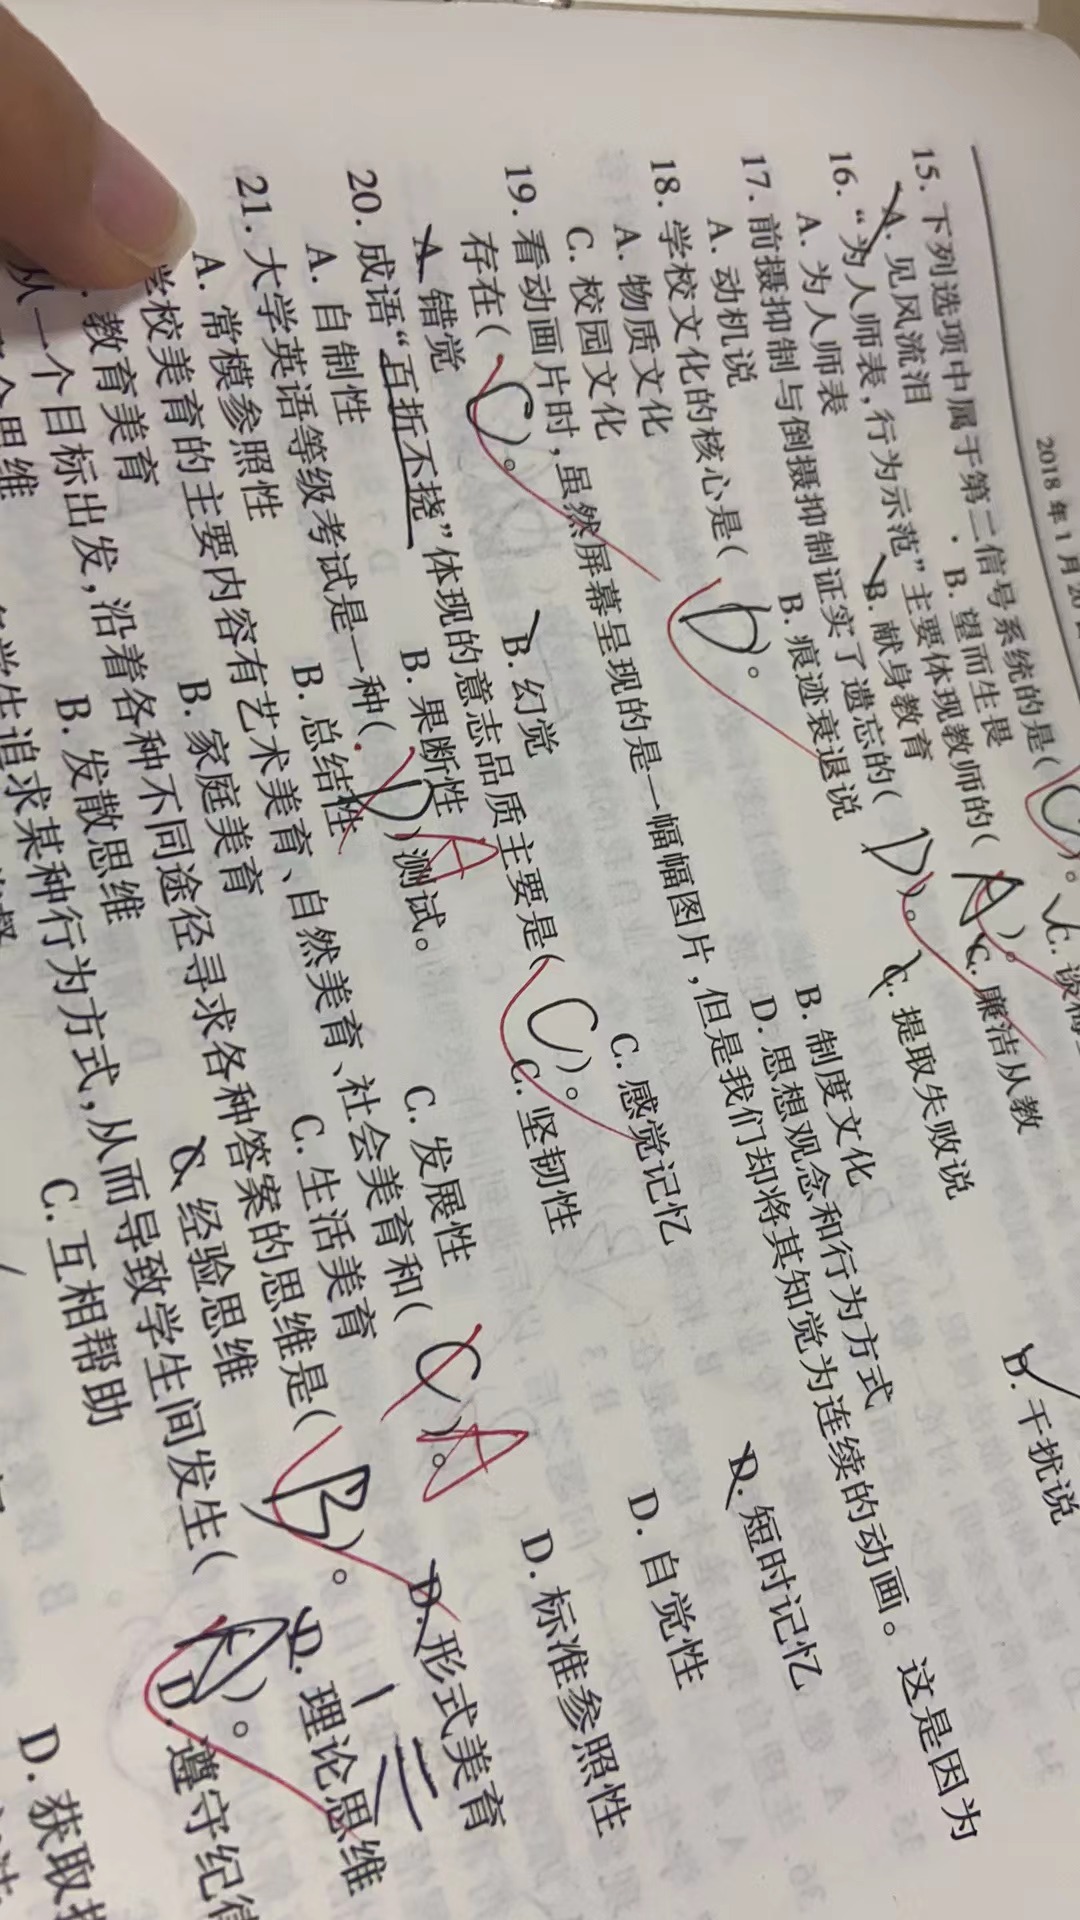 2018年1月20日
15. 下列选项中属于第二信号系统的是( C )。
A. 见风流泪 B. 望而生畏 C. 谈梅
16. “为人师表,行为示范”主要体现教师的( A )。
A. 为人师表 B. 献身教育 C. 廉洁从教
17. 前摄抑制与倒摄抑制证实了遗忘的( D )。
A. 动机说 B. 痕迹衰退说 C. 提取失败说 D. 干扰说
18. 学校文化的核心是( D )。
A. 物质文化 B. 制度文化
C. 校园文化 D. 思想观念和行为方式
19. 看动画片时,虽然屏幕呈现的是一幅幅图片,但是我们却将其知觉为连续的动画。这是因为
存在( C )。
A. 错觉 B. 幻觉 C. 感觉记忆 D. 短时记忆
20. 成语“百折不挠”体现的意志品质主要是( C )。
A. 自制性 B. 果断性 C. 坚韧性 D. 自觉性
21. 大学英语等级考试是一种( D )测试。 A
A. 常模参照性 B. 总结性 C. 发展性 D. 标准参照性
学校美育的主要内容有艺术美育、自然美育、社会美育和( C )。 A
. 教育美育 B. 家庭美育 C. 生活美育 D. 形式美育
从一个目标出发,沿着各种不同途径寻求各种答案的思维是( B )。
思维 B. 发散思维 C. 经验思维 D. 理论思维
学生追求某种行为方式,从而导致学生间发生( A )。
C. 互相帮助 D. 遵守纪律
D. 获取